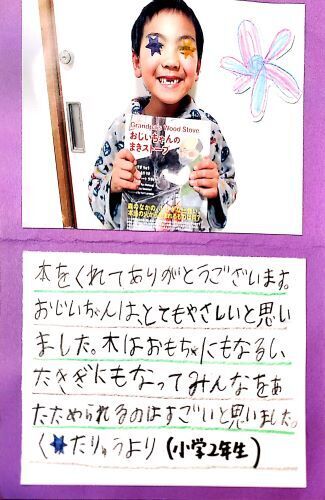 Grandpa's Wood Stove
おじいちゃんの
まきストーブ
本をくれてありがとうございます。
おじいちゃんは、とてもやさしいと思い
ました。木はおもちゃにもなるい
たきぎにもなってみんなをあ
たためられるのはすごいと思いました。
く たりゅうより (小学2年生)